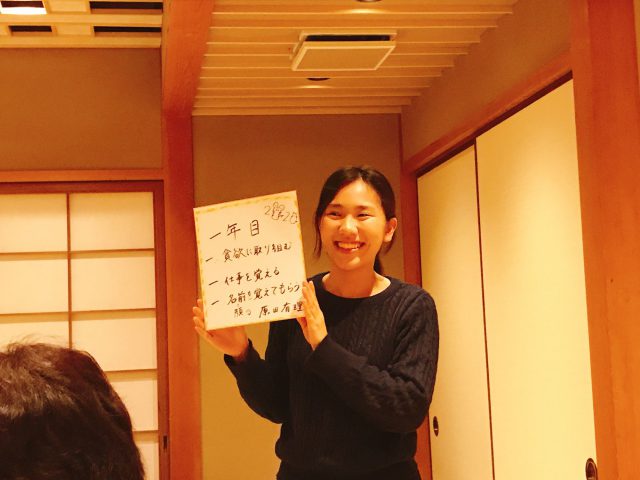 一年目
一 貪欲に取り組む
一 仕事を覚える
一 名前を覚えてもらう
原田有理